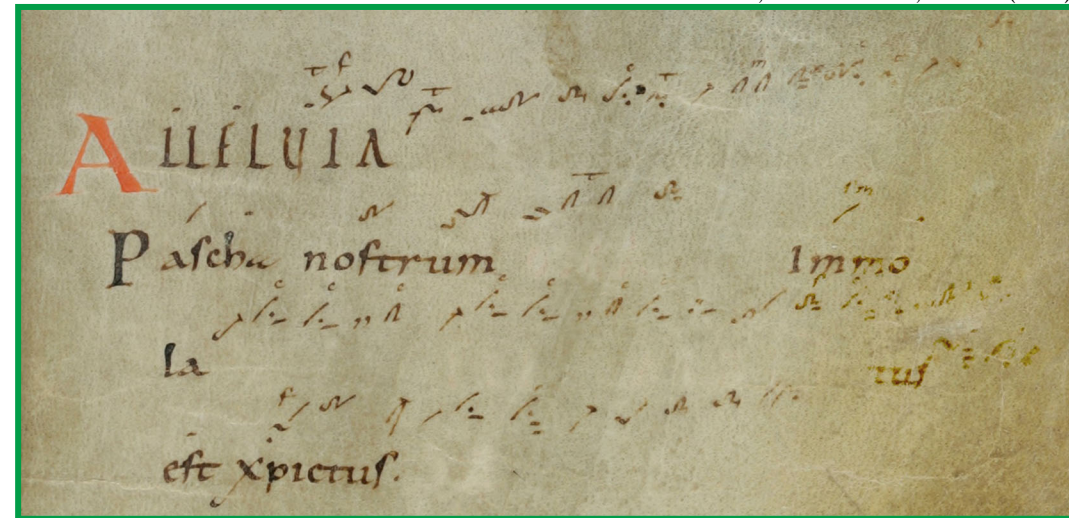 ALLELUIA
Pascha nostrum Immo
la tus
est xpictus.